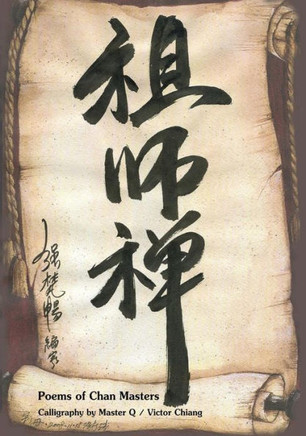 祖师禅
Poems of Chan Masters
Calligraphy by Master Q / Victor Chiang